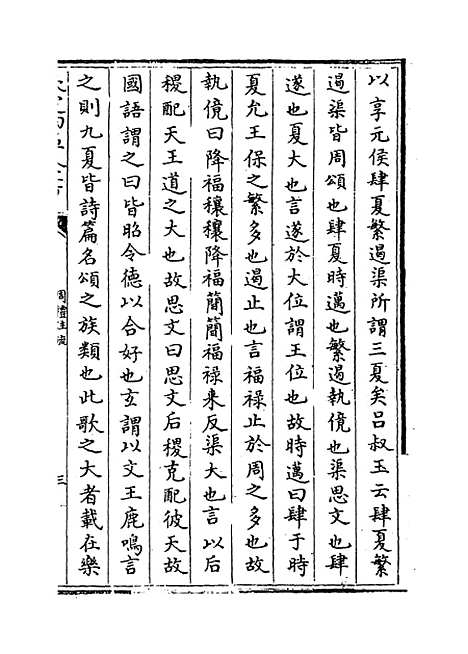 以享元侯肆夏繁遏渠所謂三夏矣呂叔玉云肆夏繁
遏渠皆周頌也肆夏時邁也繁遏執儐也渠思文也肆
遂也夏大也言遂於大位謂王位也故時邁曰肆于時
夏允王保之繁多也遏止也言福禄止於周之多也故
執儐曰降福穰穰降福簡簡福禄来反渠大也言以后
稷配天王道之大也故思文曰思文后稷克配彼天故
國語謂之曰皆昭令德以合好也玄謂以文王鹿鳴言
之則九夏皆詩篇名頌之族類也此歌之大者載在樂
周禮注疏
三